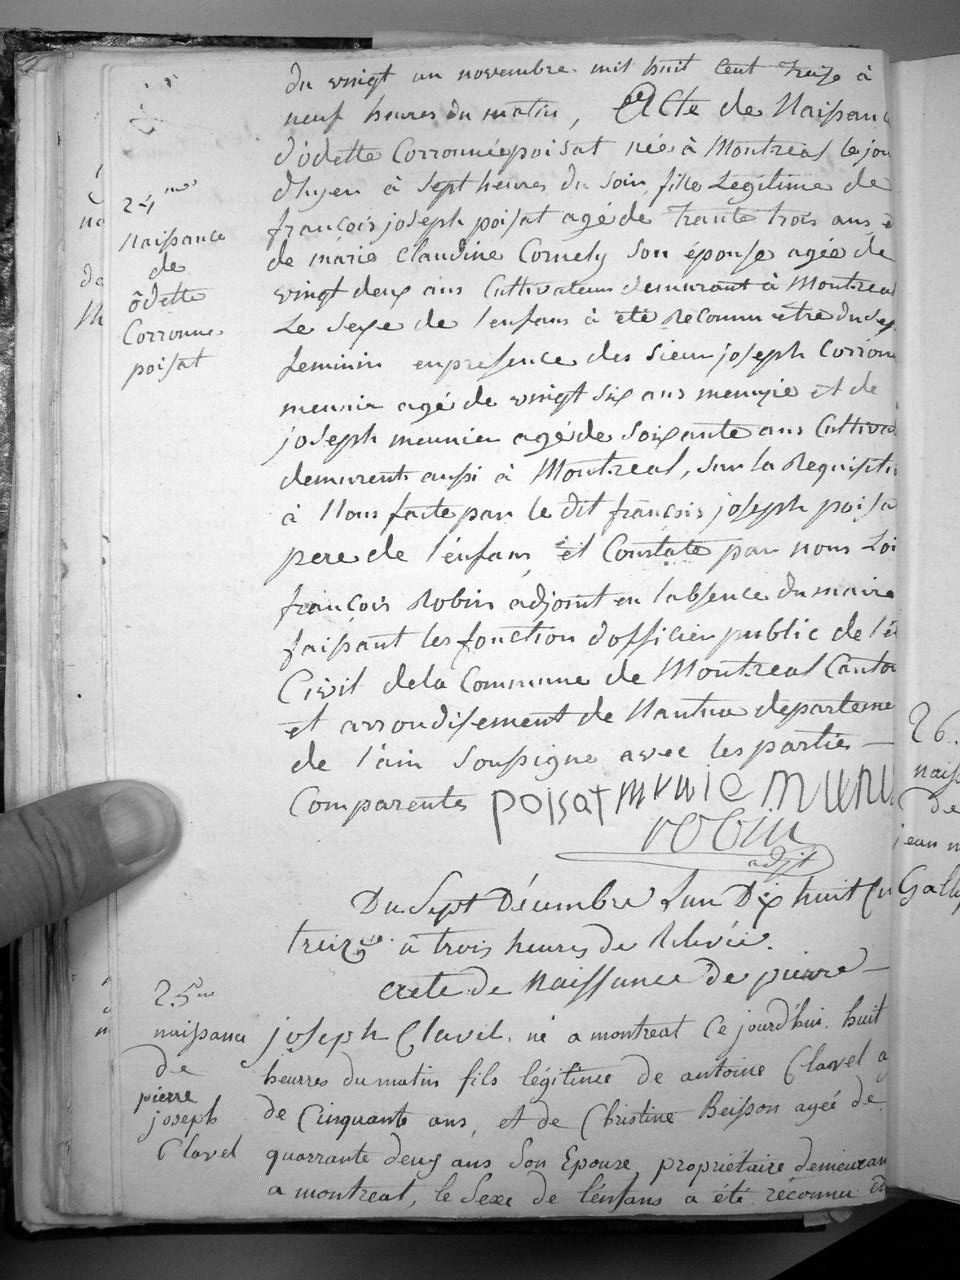 du vingt un novembre mil huit cent treize à
neuf heures du matin, Acte de Naissanc
d'odette Corronnée poisat née à Montreal le jou
d'hyer à sept heures du soir, fille Legitime de
françois joseph poisat agé de trante trois ans e
de marie Claudine Cornely son épouse agée de
vingt deux ans Cultivateur demurant à Montreal
Le sexe de l'enfans à été Reconnu etre du sex
feminin en presence des sieur joseph Corron
meunie agé de vingt six ans menuzie et de
joseph meunier agé de soixante ans Cultiva
demurent aussi à Montreal, sur la Requisiti
à Nous faite par le dit françois joseph poisa
pere de l'enfans, et Constate par nous Loi
françois Robin adjoint en l'absence du maire
faissant les fonction d'officier public de l'é
Civil de la Commune de Montreal Canto
et arrondisement de Nantua departeme
de l'ain soussigne avec les partie
Comparente poisat munie muni
robin
adjt
24me
Naissance
de
odette
Corronne
poisat
Du Sept Décembre L'an Dix huit Cen
treize à trois heures de Relevée.
acte de Naissance de pierre
joseph Clavel. né a montreal Ce jourd'hui huit
heurres du matin fils légitime de antoine Clavel a
de Cinquante ans, et de Christine Beisson agée de
quarrante deux ans Son Epouse, propriétaire demeuran
a montreal, le Sexe de l'énfans a été réconnu et
25me
naissance
de
pierre
joseph
Clavel
26.
naiss
de
jean m
Gall